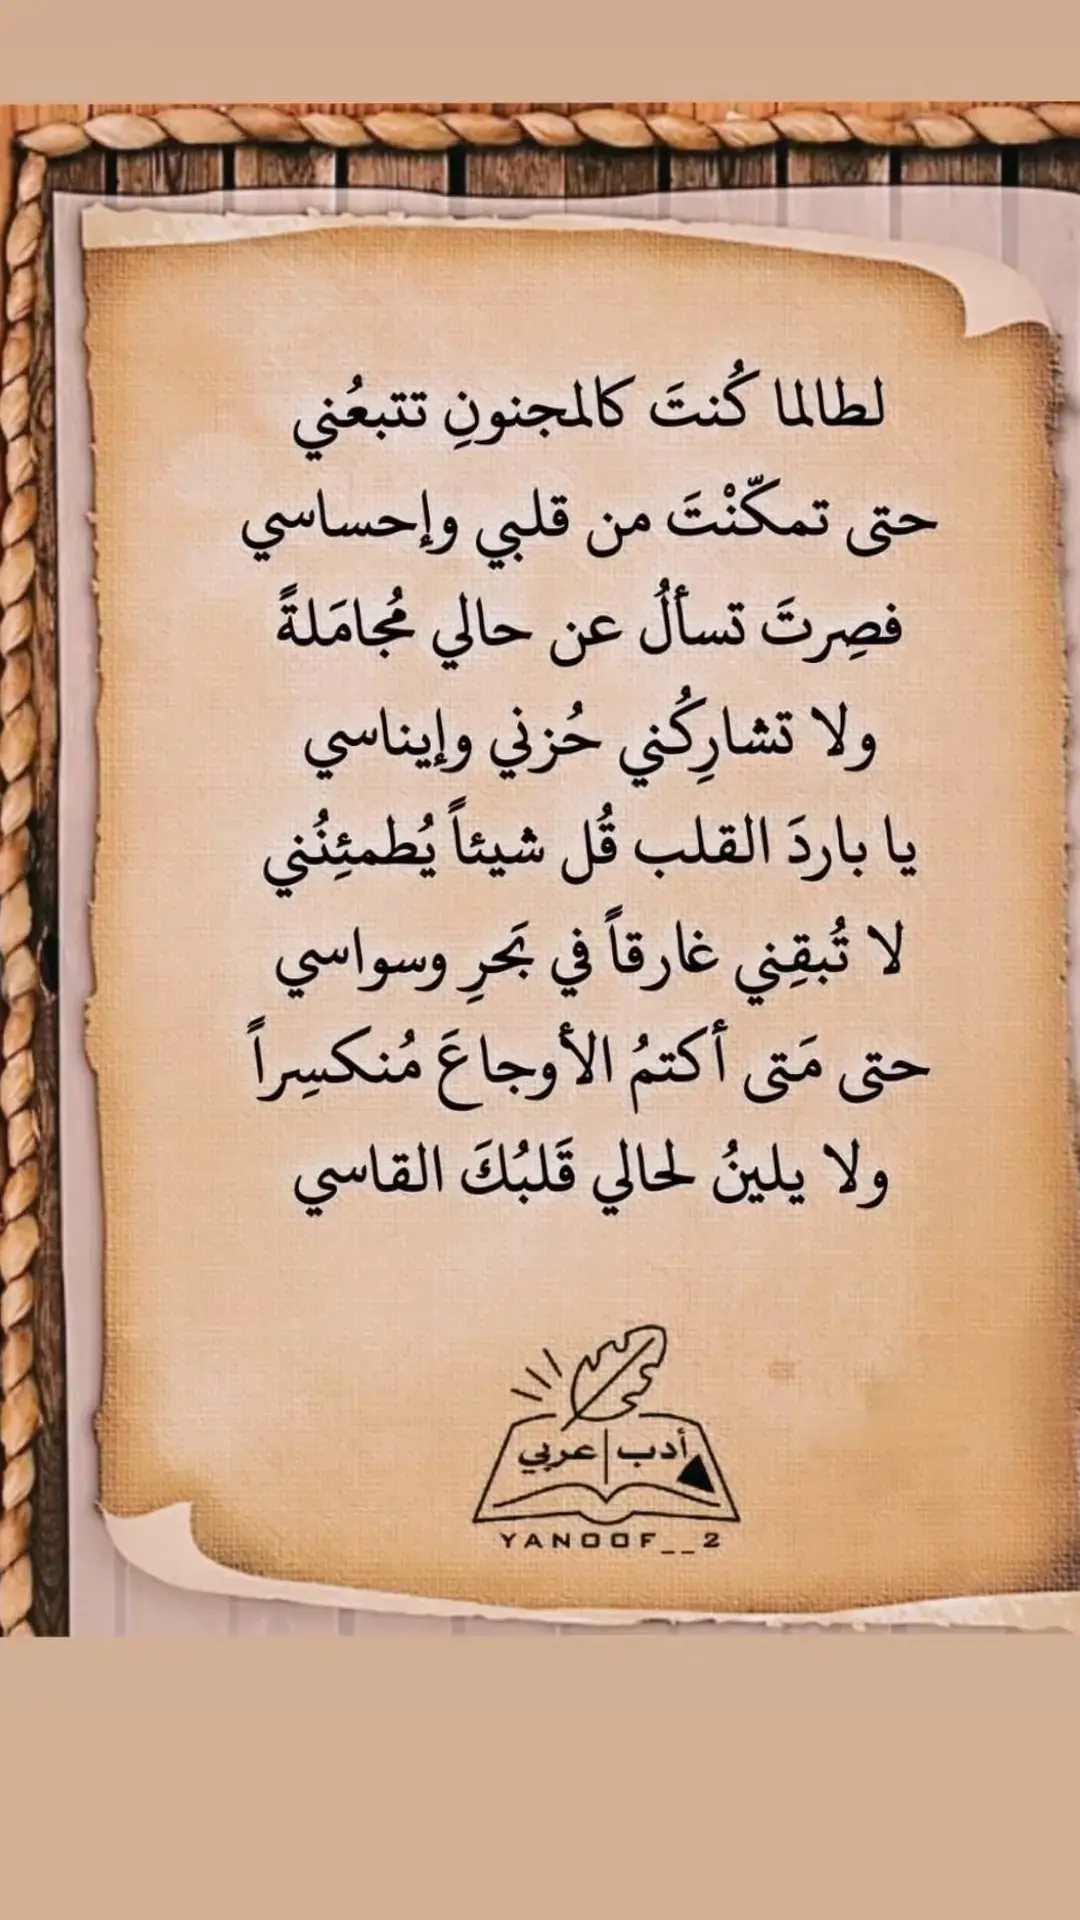 لطالما كُنتَ كالمجنونِ تتبعُني
حتى تمكّنْتَ من قلبي وإحساسي
فصِرتَ تسألُ عن حالي مُجامَلةً
ولا تشارِكُني حُزني وإيناسي
يا باردَ القلب قُل شيئاً يُطمئِنُني
لا تُبقِني غارقاً في بَحرِ وسواسي
حتى مَتى أكتمُ الأوجاعَ مُنكسِراً
ولا يلينُ لحالي قَلبُكَ القاسي
أدب | عربي
YANOOF__2